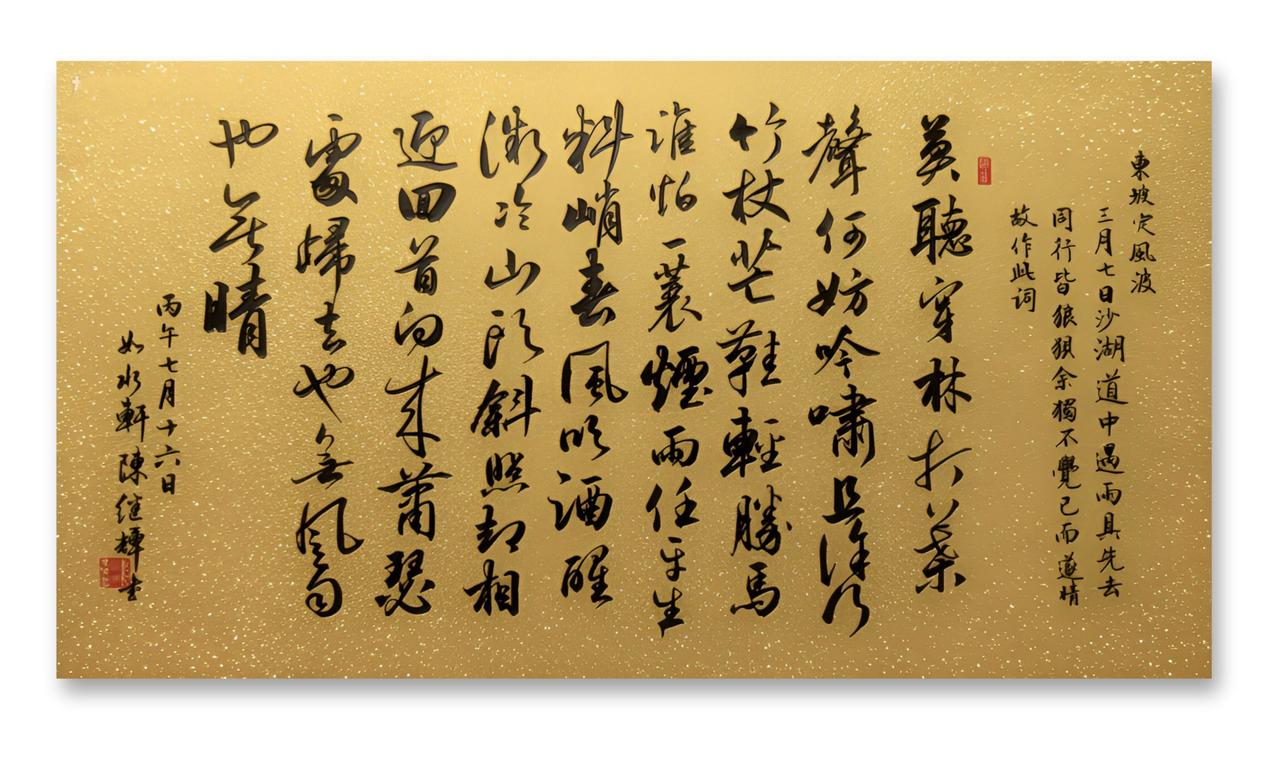 東坡定風波
三月七日沙湖道中遇雨具先去
同行皆狼狽余獨不覺已而遂晴
故作此詞
莫聽穿林打葉
聲何妨吟嘯且徐行
竹杖芒鞋輕勝馬
誰怕一蓑煙雨任平生
料峭春風吹酒醒
微冷山頭斜照却相
迎回首向來蕭瑟
處歸去也無風雨
也無晴
丙午七月十六日
如水軒陳继輝書